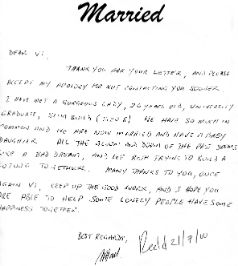 Married
DEAR VI,
THANK YOU FOR YOUR LETTER, AND PLEASE
ACCEPT MY APOLOGY FOR NOT CONTACTING YOU SOONER
I HAVE MET A GORGEOUS LADY, 26 YEARS OLD, UNIVERSITY
GRADUATE, SLIM BUILD (SIZE 8) WE HAVE SO MUCH IN
COMMON AND WE ARE NOW MARRIED AND HAVE A BABY
DAUGHTER. ALL THE AND DOWN OF THE PAST SEEMS
LIKE A BAD DREAM, AND WE BOTH TRYING TO BUILD A
FUTURE TOGETHER. MANY THANKS TO YOU, ONCE
AGAIN VI, KEEP UP THE GOOD WORK, AND I HOPE YOU
ARE ABLE TO HELP SOME LONELY PEOPLE HAVE SOME
HAPPINESS TOGETHER.
BEST REGARDS,
Recd 21/7/00